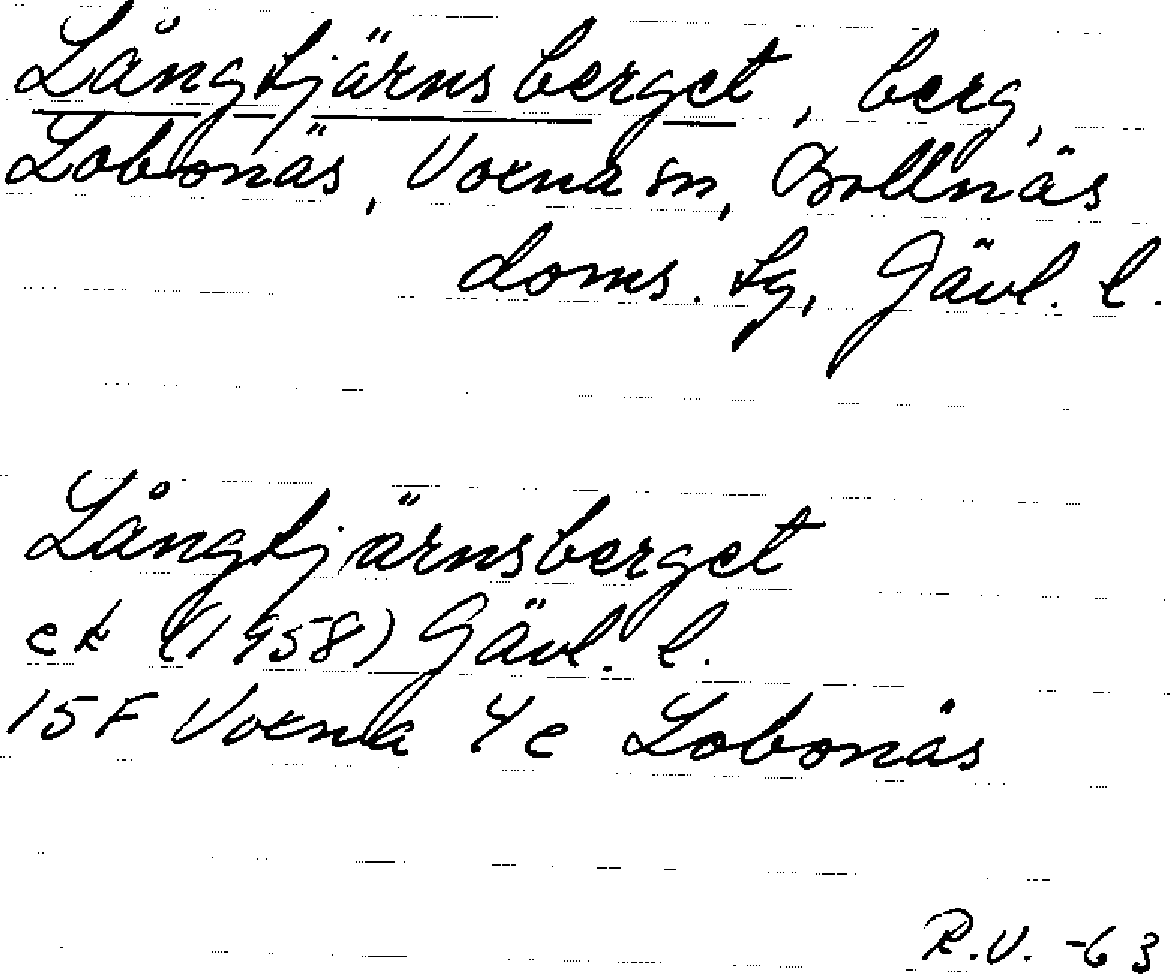 Långtjärnsberget, berg,
Lobonäs, Voxna sn, Bollnäs
doms. tg, Gävl. l.
Långtjärnsberget
ek (1958) Gävl. l.
15F Voxna 4e Lobonäs
R.V. -63